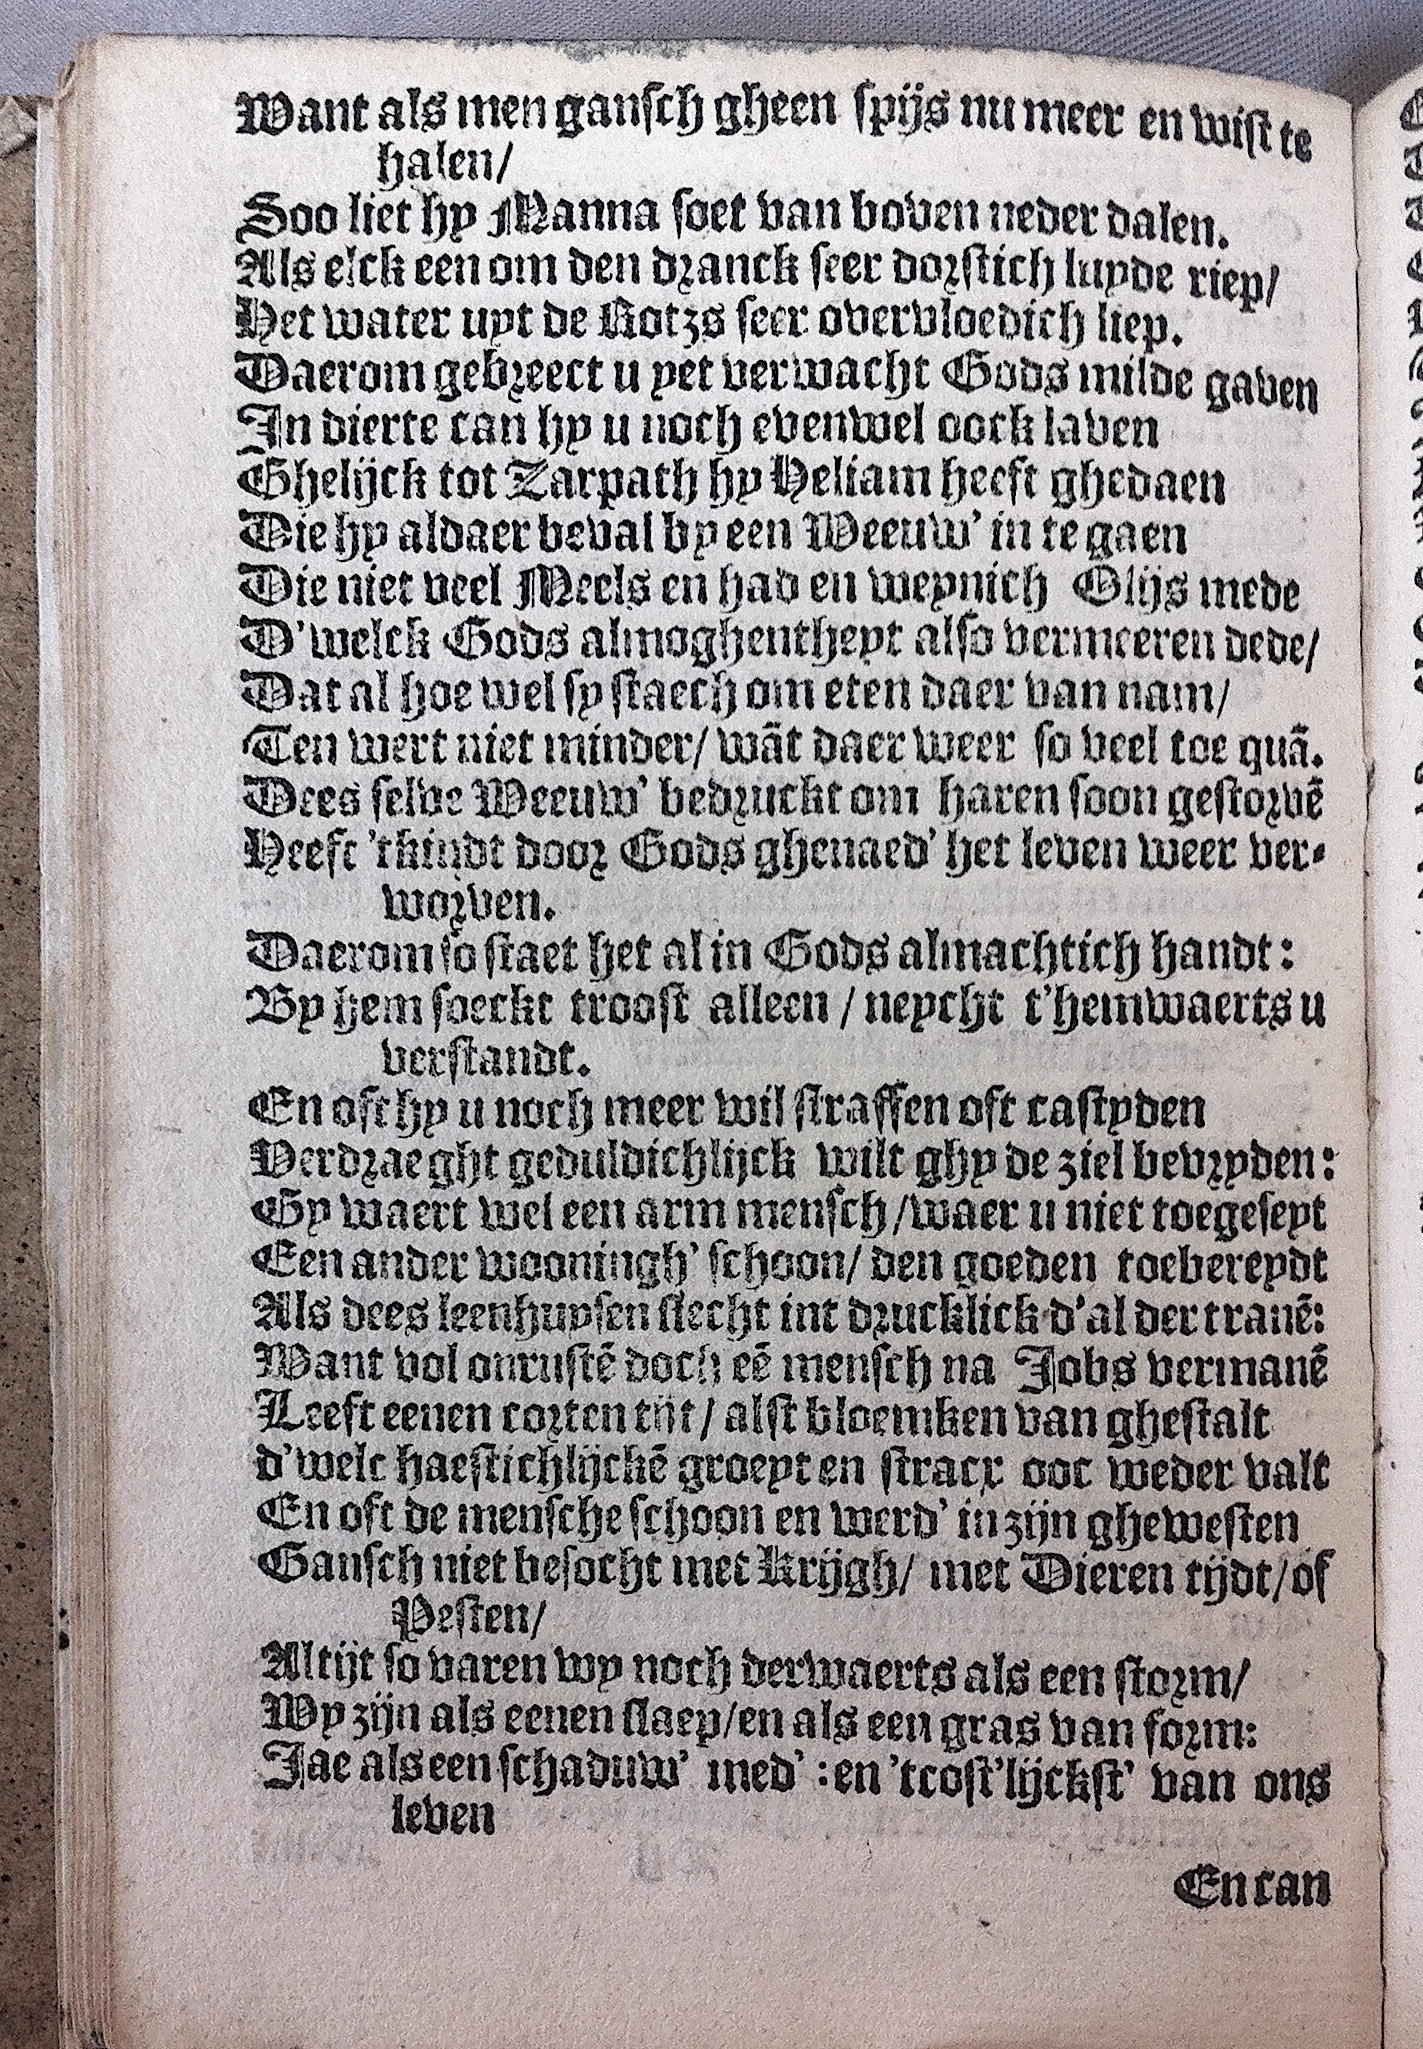 Want als men gansch gheen spijs nu meer en wist te
halen/
Soo liet hy Manna soet van boven neder dalen.
Als elck een om den dranck seer dorstich luyde riep/
Het water uyt de Rotzs seer overvloedich liep.
Daerom gebreect u yet verwacht Gods milde gaven
In dierte can hy u noch evenwel oock laven
Ghelijck tot Zarpath hy Heliam heeft ghedaen
Die hy aldaer beval by een Weeuw' in te gaen
Die niet veel Meels en had en weynich Olijs mede
D'welck Gods almoghentheyt also vermeeren dede/
Dat al hoe wel sy staech om eten daer van nam/
Ten wert niet minder/ wāt daer weer so veel toe quā.
Dees selve Weeuw' bedruckt om haren soon gestorvē
Heeft 'tkindt door Gods ghenaed' het leven weer ver-
worven.
Daerom so staet het al in Gods almachtich handt:
By hem soeckt troost alleen / neycht t'hemwaerts u
verstandt.
En oft hy u noch meer wil straffen oft castyden
Verdraeght geduldichlijck wilt ghy de ziel bevryden:
Gy waert wel een arm mensch/waer u niet toegeseyt
Een ander wooningh' schoon/ den goeden toebereydt
Als dees leenhuysen slecht int drucklick d'al der tranē:
Want vol onrustē doch eē mensch na Jobs vermanē
Leeft eenen corten tijt/ alst bloemken van ghestalt
d'welc haestichlijckē groeyt en stracx ooc weder valt
En oft de mensche schoon en werd' in zijn ghewesten
Gansch niet besocht met Krijgh/ met Dieren tijdt/of
Pesten/
Altijt so varen wy noch derwaerts als een storm/
Wy zijn als eenen slaep/en als een gras van form:
Jae als een schaduw' med' : en 'tcost'lijckst' van ons
leven
En can